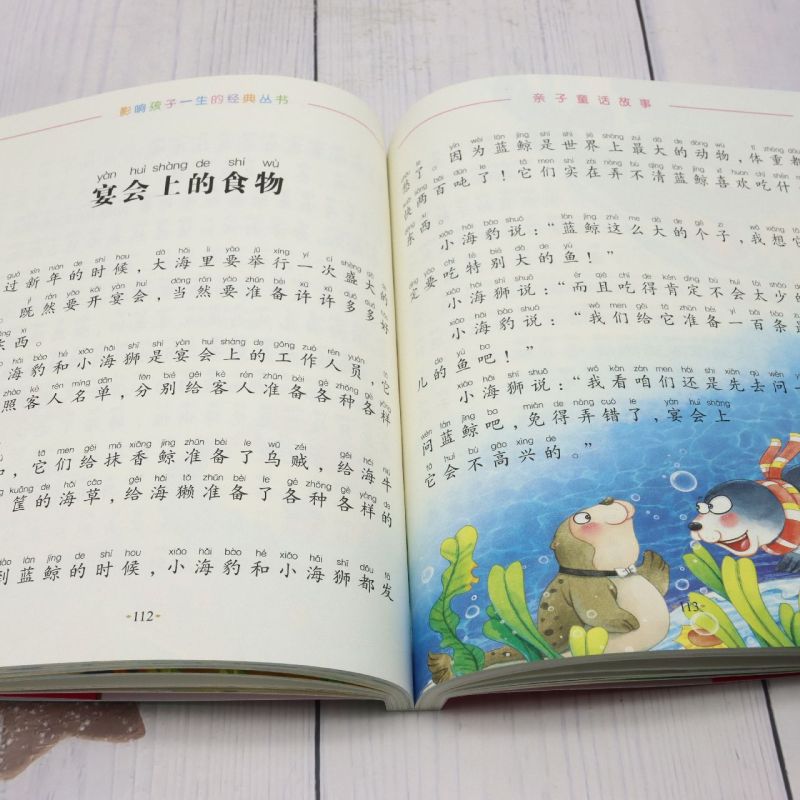 影响孩子一生的经典丛书
yàn huì shàng de shí wù
宴会上的食物
guò xīn nián de shí hou dà hǎi lǐ yào jǔ xíng yí cì shèng dà de
过新年的时候，大海里要举行一次盛大的
jì rán yào kāi yàn huì dāng rán yào zhǔn bèi xǔ xǔ duō duō hǎo
。既然要开宴会，当然要准备许许多多好
xi
东西。
hǎi bào hé xiǎo hǎi shī shì yàn huì shàng de gōng zuò rén yuán tā
海豹和小海狮是宴会上的工作人员，它
zhào kè rén míng dān fēn bié gěi kè rén zhǔn bèi gè zhǒng gè yàng
照客人名单，分别给客人准备各种各样
tā men gěi mǒ xiāng jīng zhǔn bèi le wū zéi gěi hǎi niú
，它们给抹香鲸准备了乌贼，给海牛
kuāng de hǎi cǎo gěi hǎi tǎ zhǔn bèi le gè zhǒng gè yàng de
筐的海草，给海獭准备了各种各样的
dào lán jīng de shí hou xiǎo hǎi bào hé xiǎo hǎi shī dōu fā
到蓝鲸的时候，小海豹和小海狮都发
112
亲子童话故事
yīn wèi lán jīng shì shì jiè shàng zuì dà de dòng wù tǐ zhòng dōu
愁了。因为蓝鲸是世界上最大的动物，体重都
kuài liǎng bǎi dūn le tā men shí zài nòng bù qīng lán jīng xǐ huan chī shén
快两百吨了！它们实在弄不清蓝鲸喜欢吃什
xi
东西。
xiǎo hǎi bào shuō lán jīng zhè me dà de gè zi wǒ xiǎng tā
小海豹说：“蓝鲸这么大的个子，我想它
dìng yào chī tè bié dà de yú
定要吃特别大的鱼！”
xiǎo hǎi shī shuō ér qiě chī de kěn dìng bú huì tài shǎo de
小海狮说：“而且吃得肯定不会太少的
xiǎo hǎi bào shuō wǒ men gěi tā zhǔn bèi yì bǎi tiáo zuì
小海豹说：“我们给它准备一百条最
de yú ba
儿的鱼吧！”
xiǎo hǎi shī shuō wǒ kàn zán men hái shi xiān qù wèn
小海狮说：“我看咱们还是先去问
wèn lán jīng ba miǎn de nòng cuò le yàn huì shàng
问蓝鲸吧，免得弄错了，宴会上
tā huì bù gāo xìng de
它会不高兴的。”
113